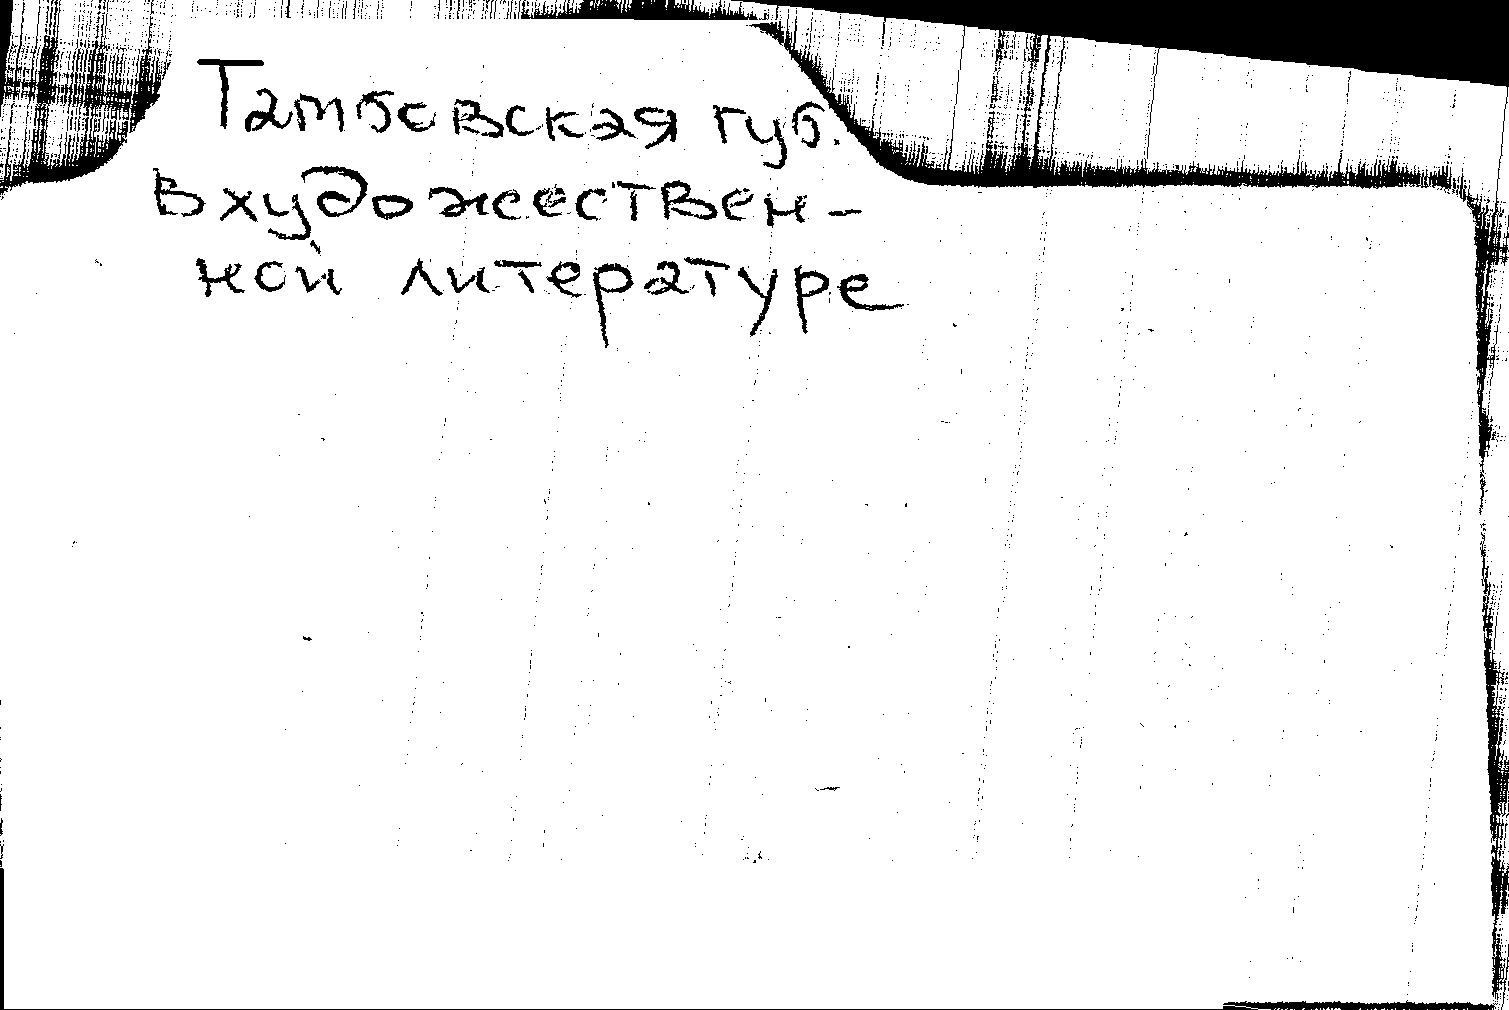 Тамбовская губ.
в художествен-
ной литературе